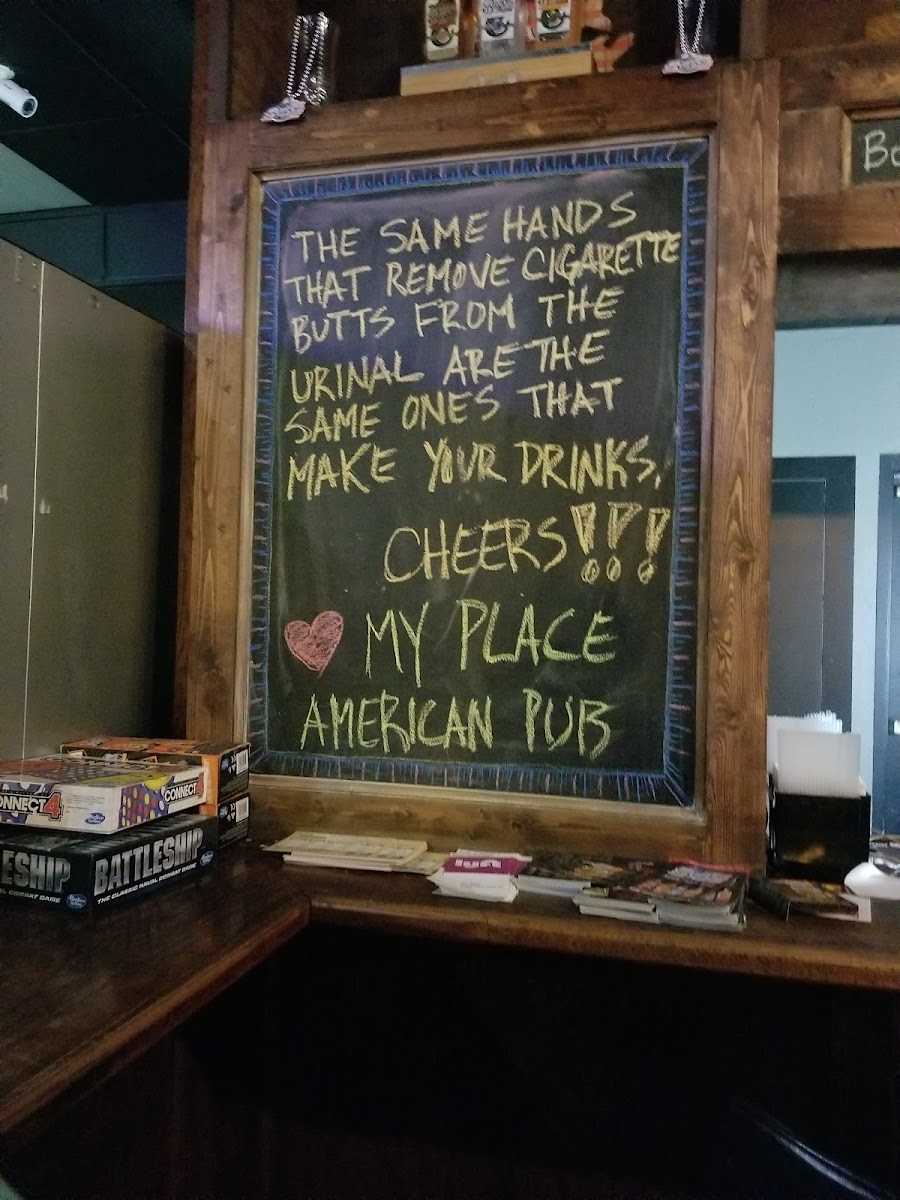 Bo
THE SAME HANDS
THAT REMOVE CIGARETTE
BUTTS FROM THE
URINAL ARE THE
SAME ONES THAT
MAKE YOUR DRINKS.
CHEERS!!!
MY PLACE
AMERICAN PUB
CONNECT 4
CONNECT4
BATTLESHIP
BATTLESHIP
THE CLASSIC NAVAL COMBAT GAME
lyft